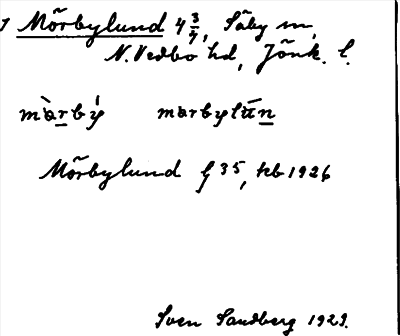 1 Mörbylund 4 3/4, Säby sn,
N. Vedbo hd, Jönk. l.
màrbý marbylūn
Mörbylund G 35, kb 1926
Sven Sandberg 1929.